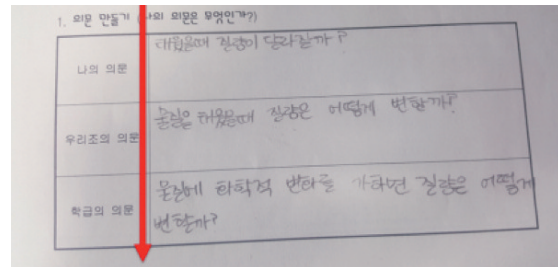 1. 의문 만들기 (나의 의문은 무엇인가?)
나의 의문
태웠을때 질량이 달라질까?
우리조의 의문
물질을 태웠을때 질량은 어떻게 변할까?
학급의 의문
물질에 화학적 변화를 가하면 질량은 어떻게
변할까?